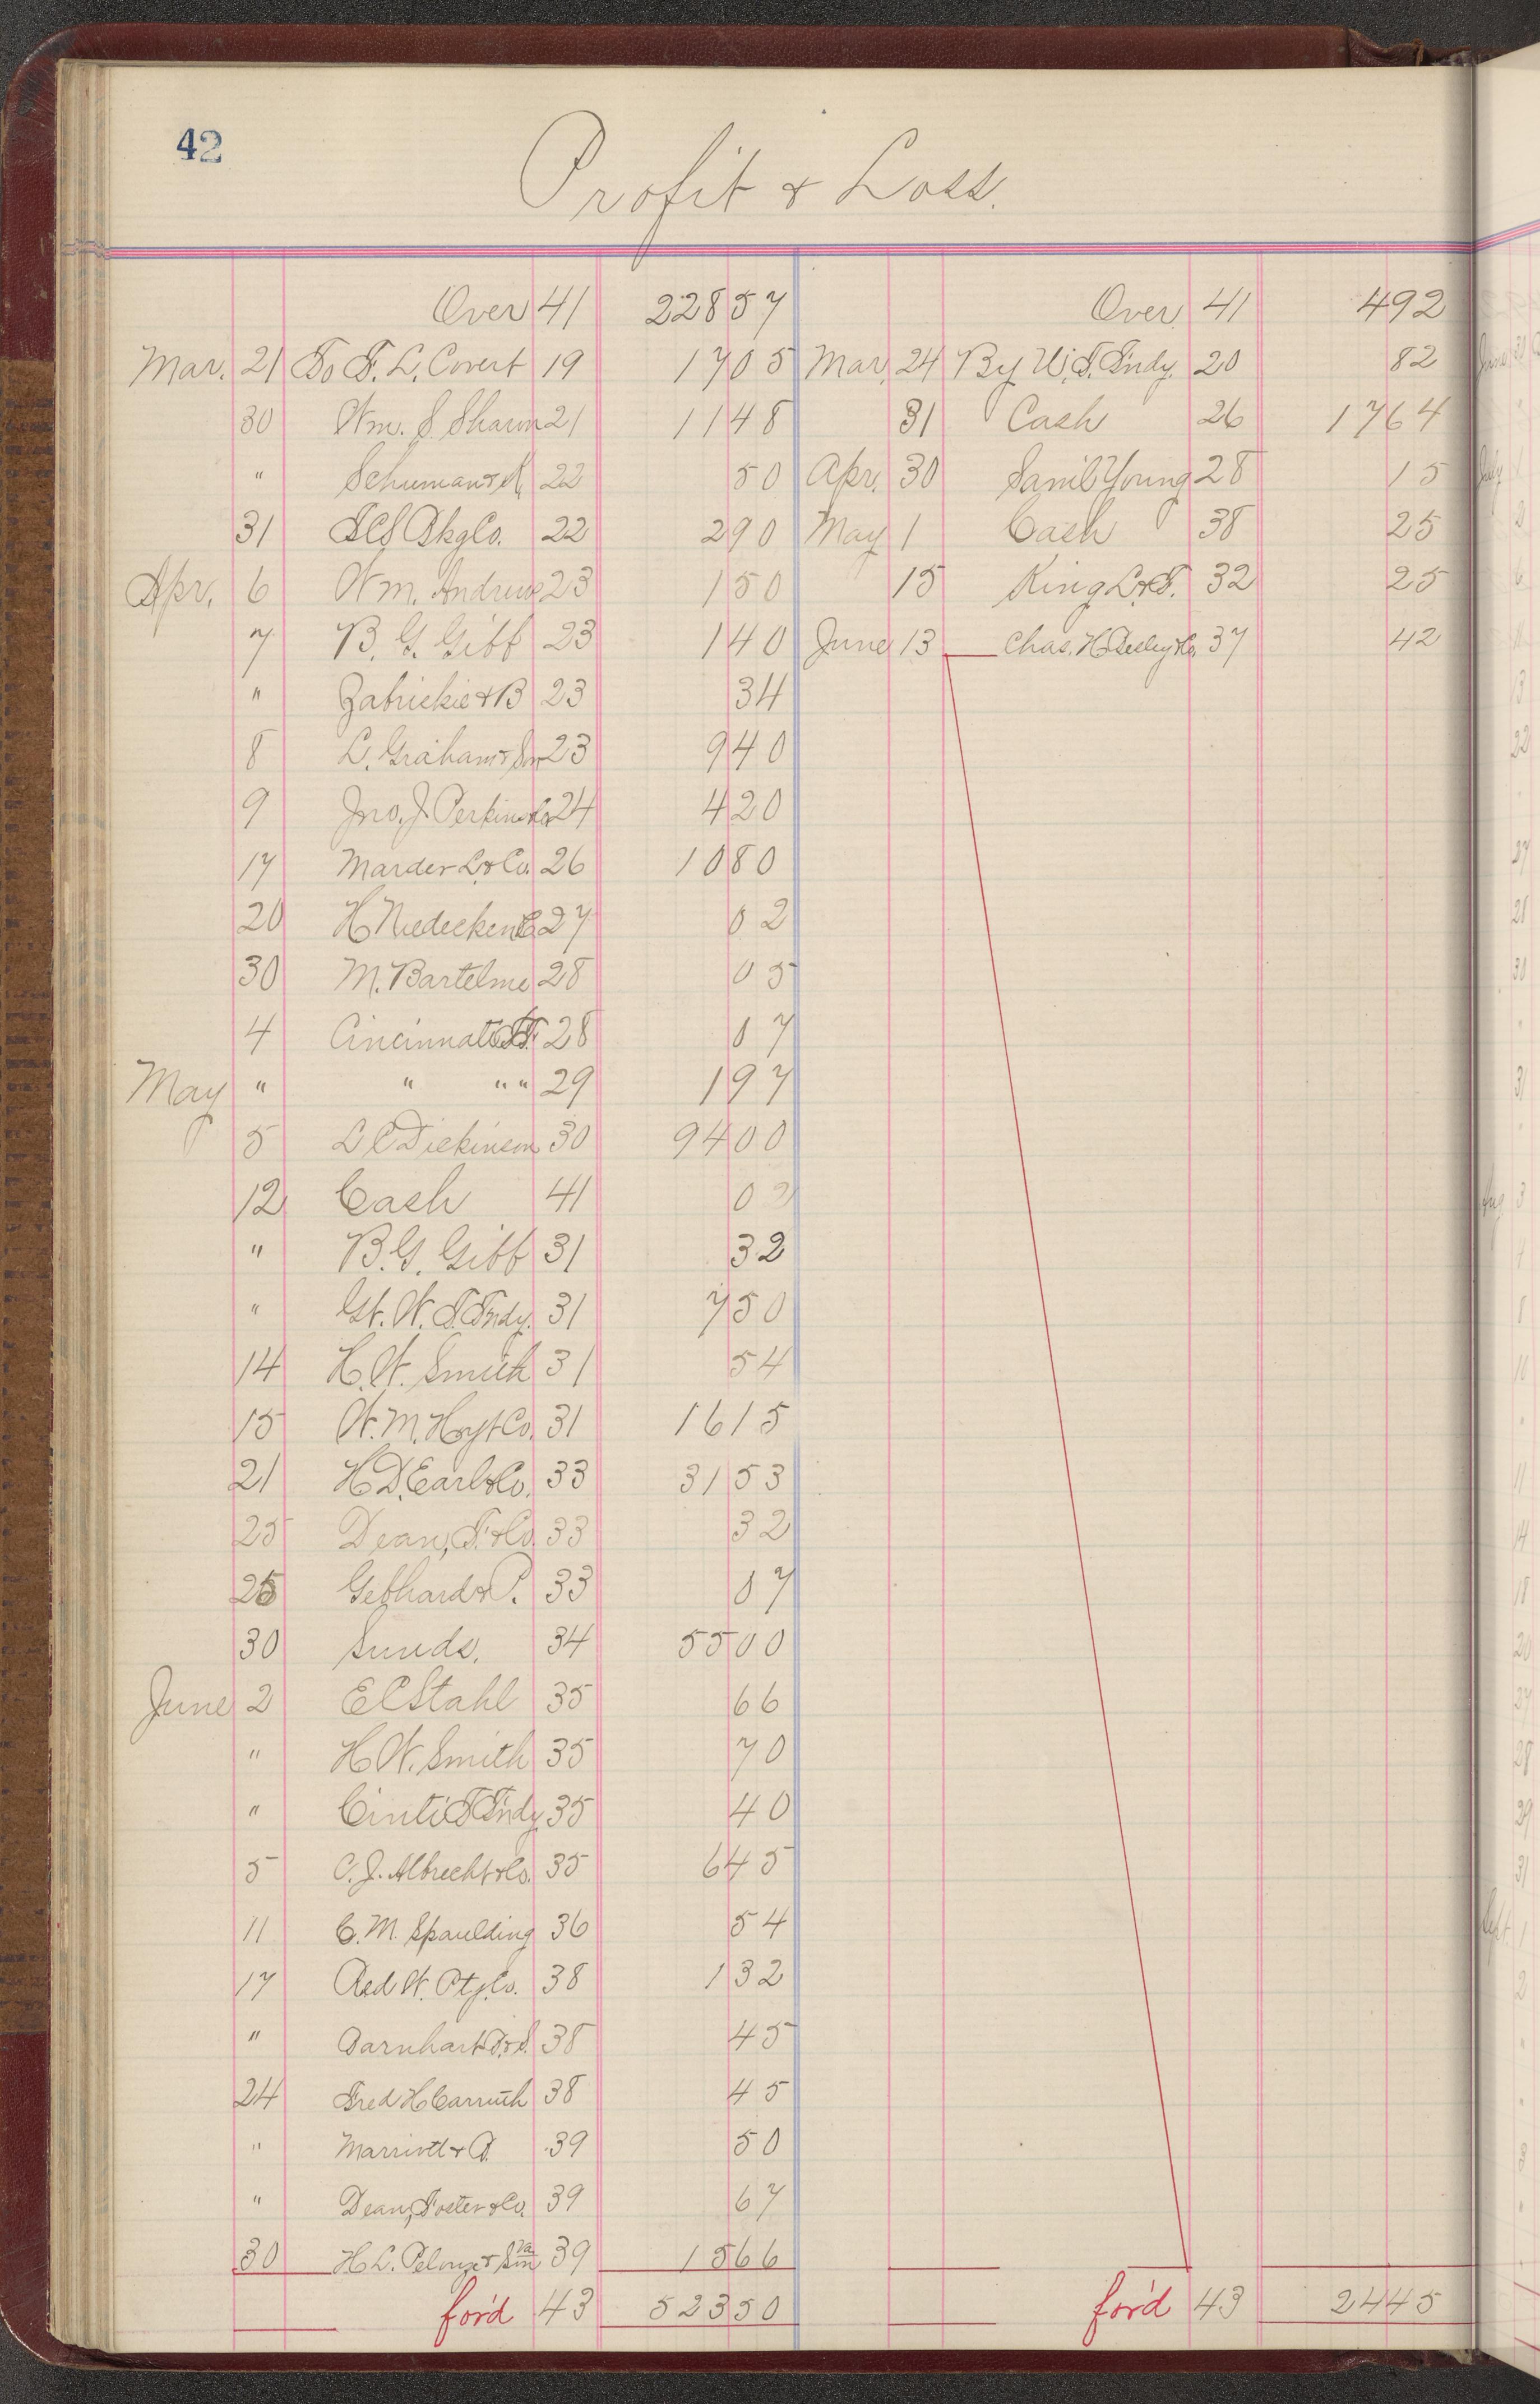 42
Profit & Loss.
Over 41 228 57 Over 41 4 92
Mar. 21 To F. L. Covert 19 17 05 Mar. 24 By W. T. Fndy. 20 82
30 Wm. S Sharon 21 11 48 31 Cash 26 17 64
" Schuman & 22 50 Apr. 30 Saml Young 28 15
31 Pkg Co. 22 2 90 May 1 Cash 38 25
Apr. 6 Wm. Andrews 23 1 50 15 King L. & F. 32 25
7 B. G. Gibb 23 1 40 June 13 Chas. H. Co. 37 42
" Zabriskie & B 23 34
8 L. Graham & Son 23 9 40
9 Jno. J. Perkins & Co 24 4 20
17 Marder L. & Co. 26 10 80
20 H Niedecken Co 27 02
30 M. Bartelme 28 05
4 Cincinnati T. F. 28 07
May " " " " 29 1 97
5 L C Dickinson 30 94 00
12 Cash 41 02
" B. G. Gibb 31 32
" Gt. W. T. Fndy. 31 7 50
14 H. W. Smith 31 54
15 W. M. Hoyt Co. 31 16 15
21 H D. Earl & Co. 33 31 53
25 Dean, F. & Co. 33 32
26 Gebhard & P. 33 07
30 Sunds. 34 55 00
June 2 E C Stahl 35 66
" H W. Smith 35 70
" Cinti T Fndy 35 40
5 C. J. Albrecht & Co. 35 6 45
11 C. M. Spaulding 36 54
17 Red W. Ptg. Co. 38 1 32
" Barnhart B. & S. 38 45
24 Fred H Carruth 38 45
" Marriott & 39 50
" Dean, Foster & Co. 39 67
30 H L. Pelouze & Son Va 39 15 66
for'd 43 523 50 for'd 43 24 45